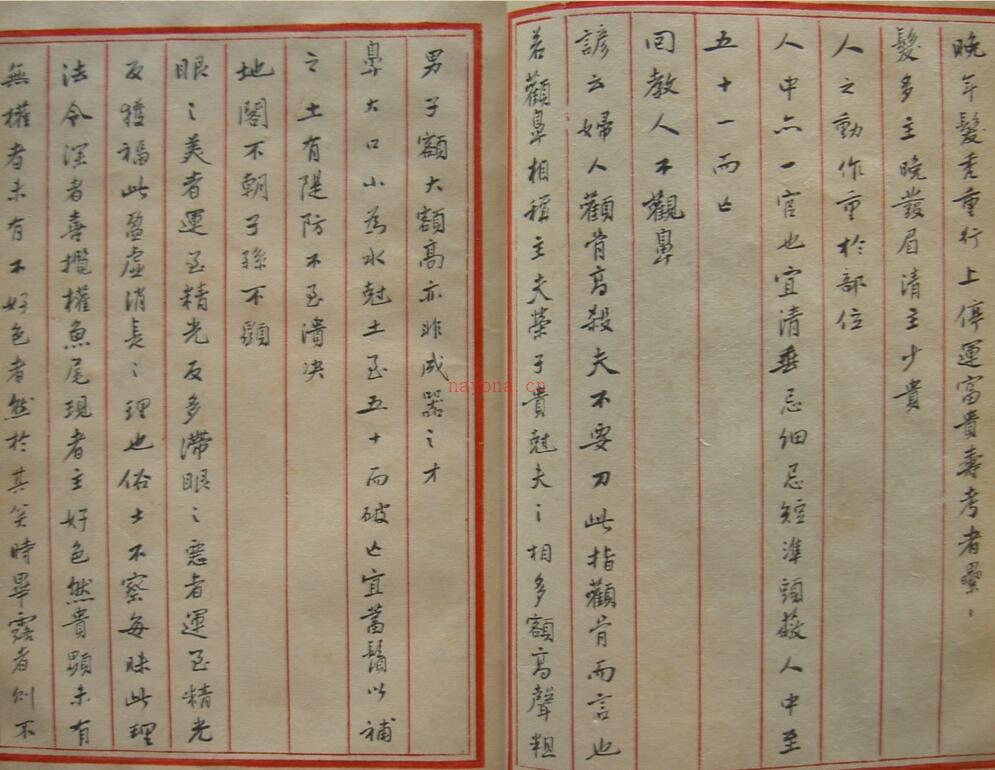 晚年髮禿重行上停運富貴壽考者纍〻
髮多主晚發眉清主少貴
人之動作重於部位
人中亦一官也宜清垂忌細忌短準頭蔽人中至
五十一而亡
回教人不觀鼻
諺云婦人顴骨高殺夫不要刀此指顴骨而言也
若顴鼻相稱主夫榮子貴尅夫之相多額高聲粗
男子額大額高亦非成器之才
鼻大口小為水尅土至五十而破亡宜蓄鬚以補
之土有隄防不至潰決
地閣不朝子孫不顯
眼之美者運至精光反多滯眼之惡者運至精光
反獲福此盈虛消長之理也俗士不察每昧此理
法令深者喜攬權魚尾現者主好色然貴顯未有
無權者未有不好色者然於其笑時畢露者則不
nayona.cn